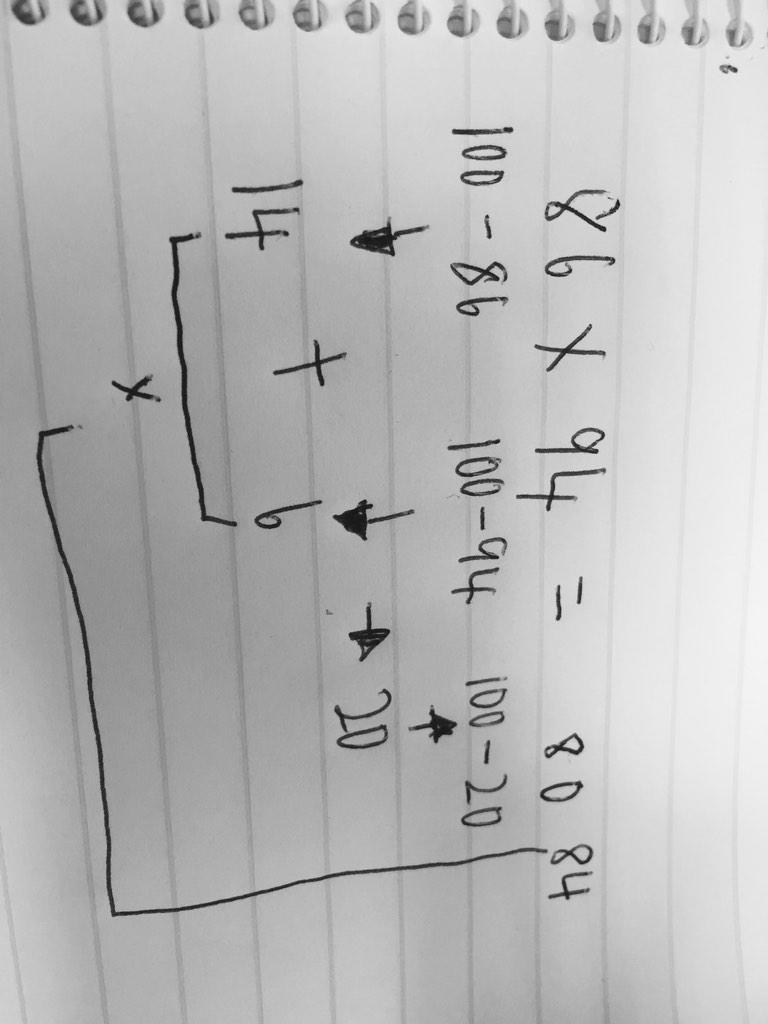 86 x 94 = 80 84
100 - 86 100 - 94 100 - 20
20
14 + 6
x